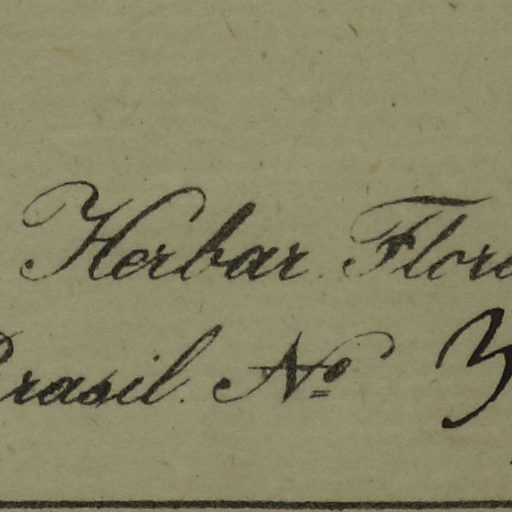 Herbar. Flora
Brasil. Nº 3